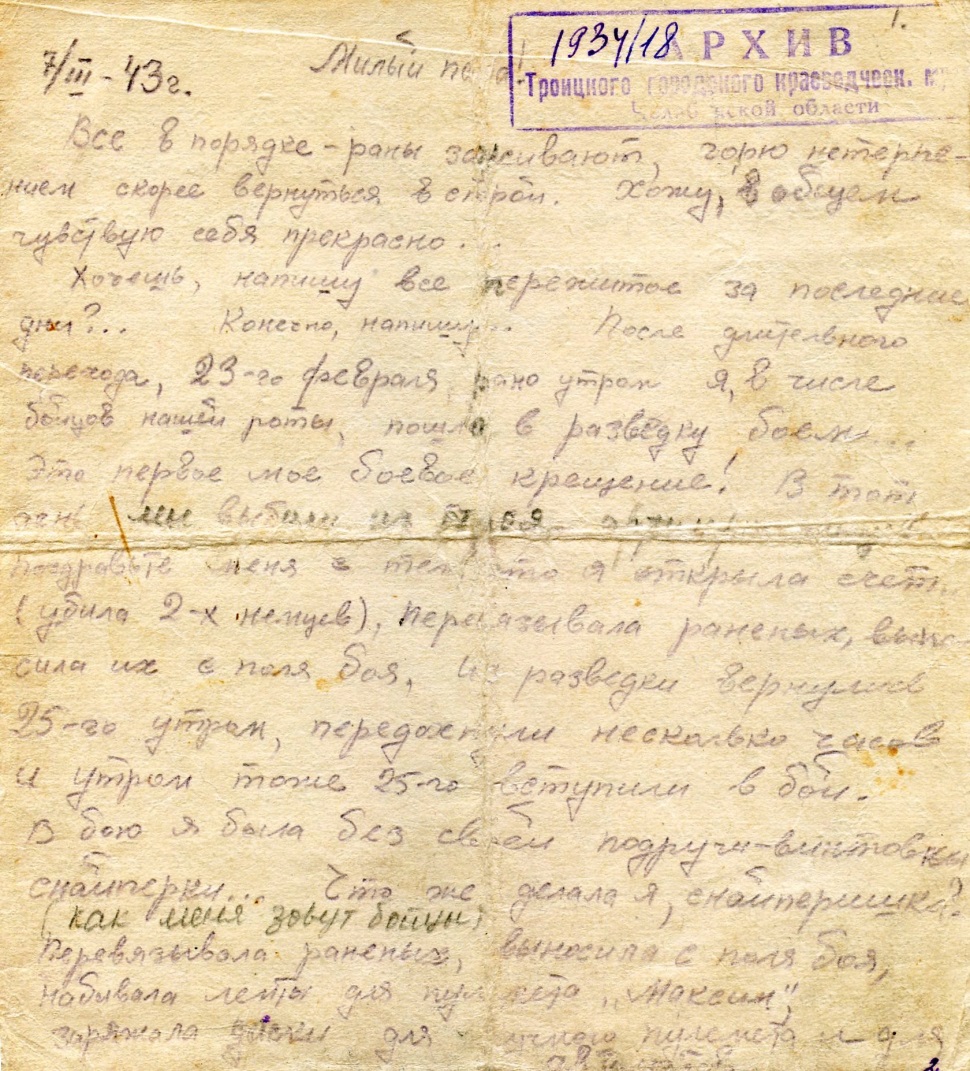 1.
1934/18 АРХИВ
Троицкого городского краеведческ. м
Челяб нской области
7/III-43г.
Милый папа!
Все в порядке - раны заживают, горю нетерпе-
нием скорее вернуться в строй. Хожу, в общем
чувствую себя прекрасно...
Хочешь, напишу все пережитое за последние
дни?.. Конечно, напишу... После длительного
перехода, 23-го февраля рано утром я, в числе
бойцов нашей роты, пошла в разведку боем...
Это первое мое боевое крещение! В тот
день мы выбили из
Поздравьте меня с тем, что я открыла счет
(убила 2-х немцев), перевязывала раненых, выно-
сила их с поля боя, из разведки вернулись
25-го утром, передохнули несколько часов
и утром тоже 25-го вступили в бой.
В бою я была без своей подруги-винтовки
снайперки... Что же делала я, снайперишка?
(как меня зовут бойцы)
Перевязывала раненых, выносила с поля боя,
набивала ленты для пулемета „Максим",
заряжала диски для ручного пулемета и для
2